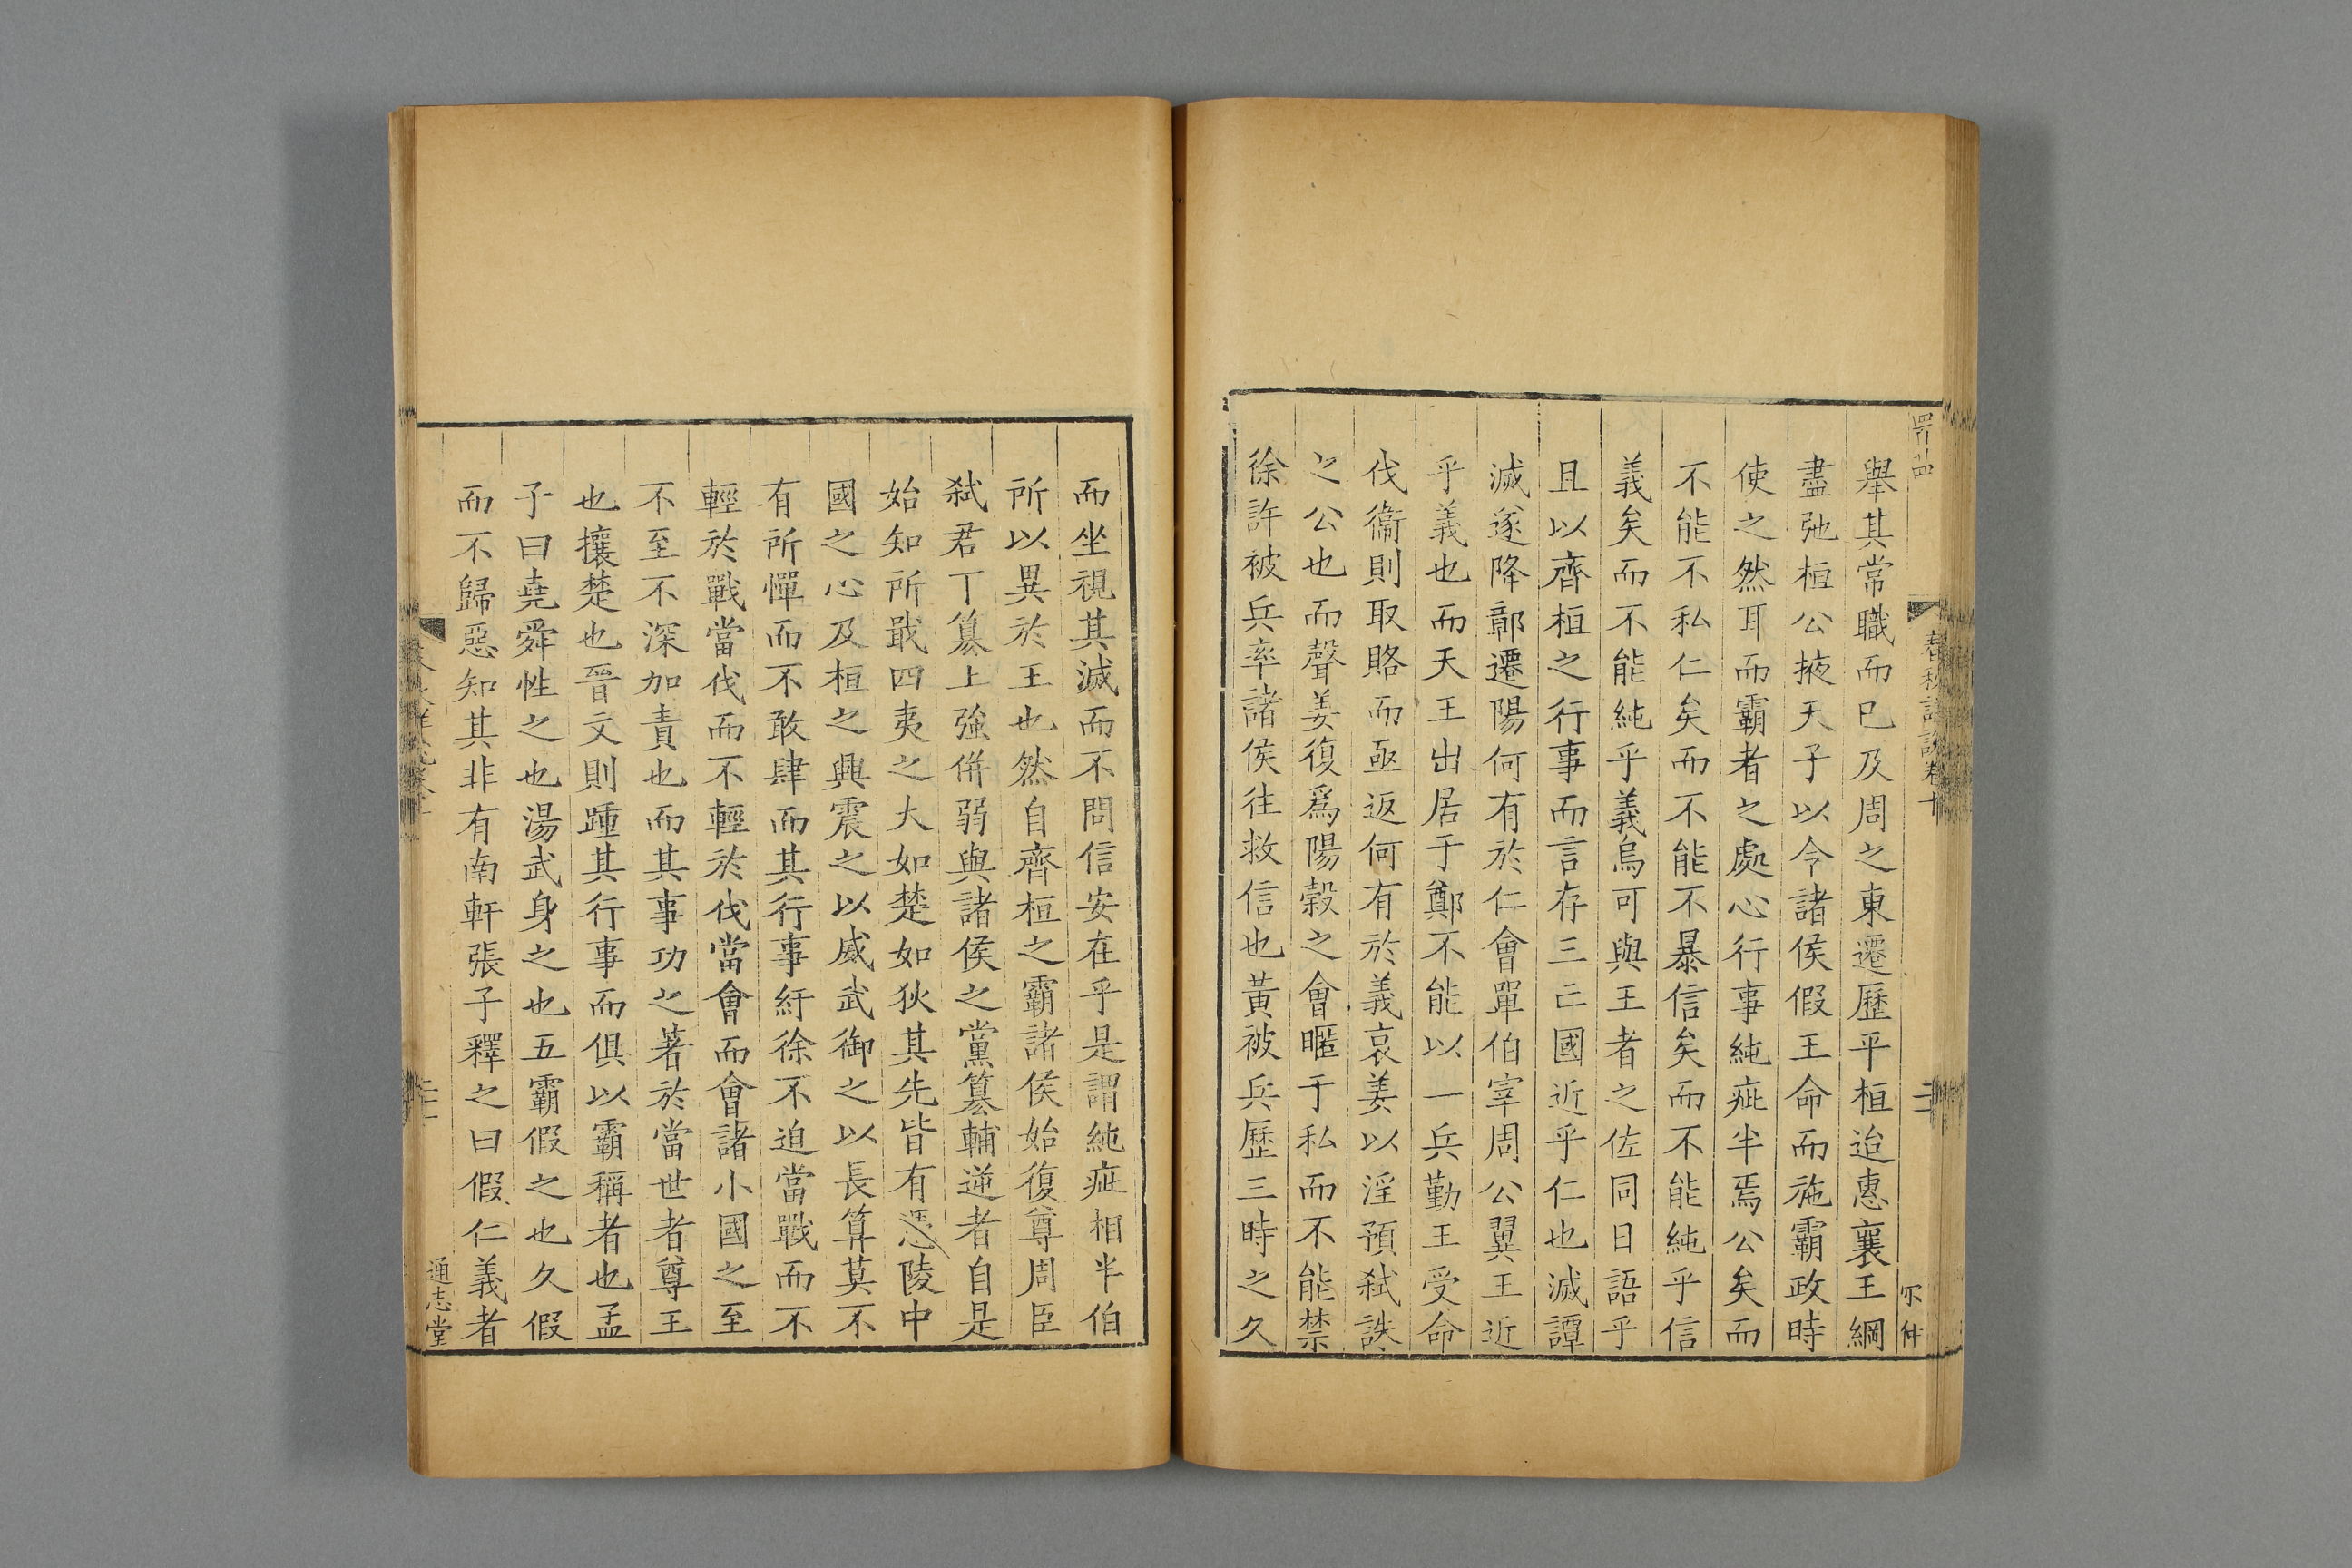 舉其常職而已及周之東遷歷平桓迨惠襄王綱
盡弛桓公掖天子以令諸侯假王命而施霸政時
使之然耳而霸者之處心行事純疵半焉公矣而
不能不私仁矣而不能不暴信矣而不能純乎信
義矣而不能純乎義烏可與王者之佐同日語乎
且以齊桓之行事而言存三亡國近乎仁也滅譚
滅遂降鄣遷陽何有於仁會單伯宰周公翼王近
乎義也而天王出居于鄭不能以一兵勤王受命
伐衞則取賂而亟返何有於義哀姜以淫預弒誅
之公也而聲姜復爲陽穀之會暱于私而不能禁
徐許被兵率諸侯往救信也黃被兵歷三時之久
而坐視其滅而不問信安在乎是謂純疵相半伯
所以異於王也然自齊桓之霸諸侯始復尊周臣
弒君丁篡上強併弱與諸侯之黨篡輔逆者自是
始知所戢四夷之大如楚如狄其先皆有憑陵中
國之心及桓之興震之以威武御之以長算莫不
有所憚而不敢肆而其行事紆徐不迫當戰而不
輕於戰當伐而不輕於伐當會而會諸小國之至
不至不深加責也而其事功之著於當世者尊王
也攘楚也晉文則踵其行事而俱以霸稱者也孟
子曰堯舜性之也湯武身之也五霸假之也久假
而不歸惡知其非有南軒張子釋之曰假仁義者
通志堂